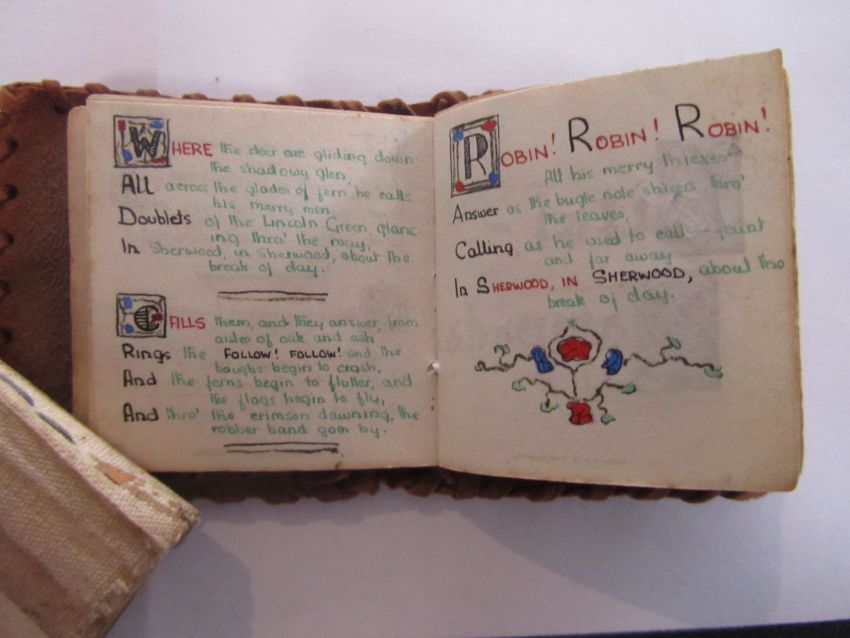 WHERE the deer are gliding down
the shadowy glen
All across the glades of fern he calls
his merry men
Doublets of the Lincoln Green, glanc-
ing thro' the may,
In Sherwood, in Sherwood, about the
break of day.
CALLS them, and they answer, from
aisles of oak and ash
Rings the FOLLOW! FOLLOW! and the
boughs begin to crash,
And the ferns begin to flutter, and
the flags begin to fly,
And thro' the crimson dawning, the
robber band goes by.
ROBIN! ROBIN! ROBIN!
All his merry thieves
Answer as the bugle note shivers thro'
the leaves,
Calling as he used to call faint
and far away
In SHERWOOD, IN SHERWOOD, about the
break of day.